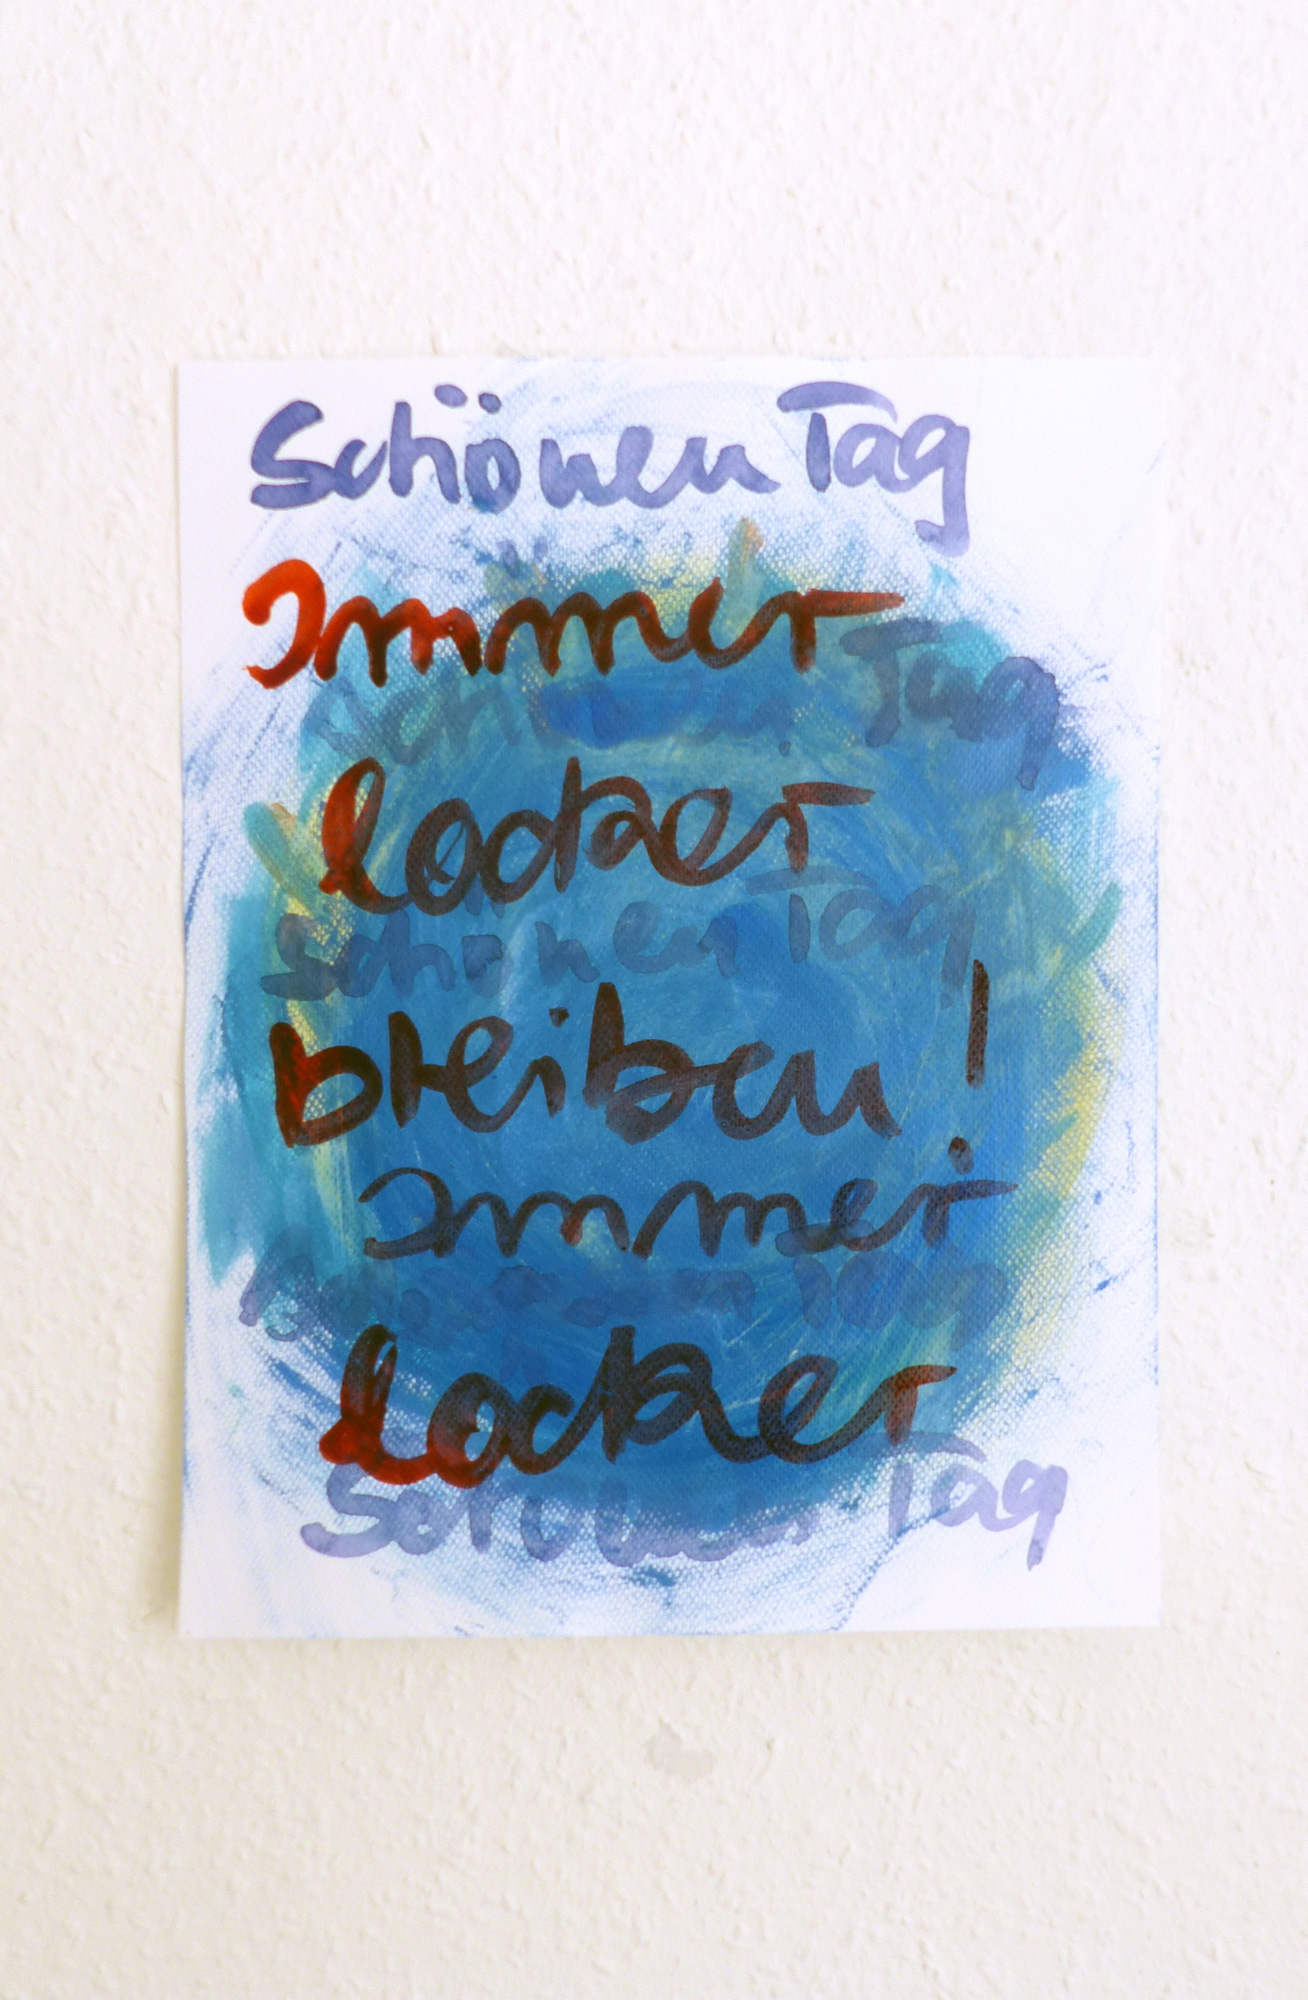 Schönen Tag
Immer
Schönen Tag
locker
Schönen Tag
bleiben!
Immer
Tag
locker
Schönen Tag